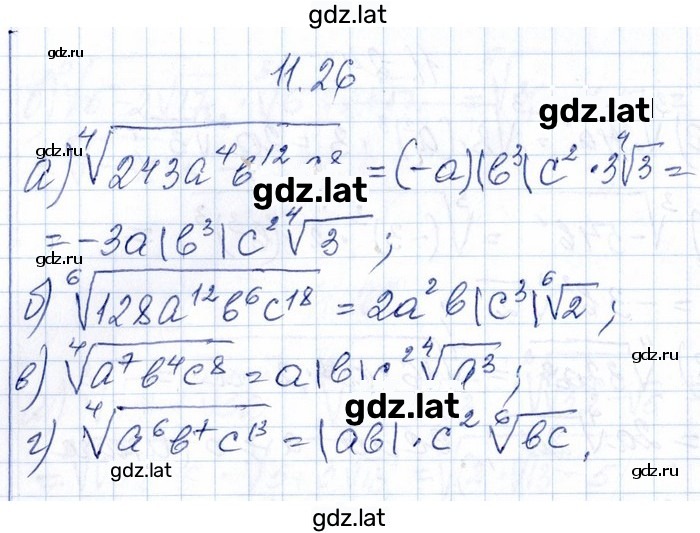 gdz.lat
gdz.ru gdz.ru
11.26
gdz.lat
gdz.ru
а) ⁴√243a⁴b¹² = (-a)|b³|c² · 3⁴√3 =
gdz.lat
= -3a|b³|c² ⁴√3 ;
gdz.ru gdz.ru
б) ⁶√128a¹²b⁶c¹⁸ = 2a²b|c³| ⁶√2 ;
в) ⁴√a⁷b⁴c⁸ = a|b| ² ⁴√a³ ;
gdz.ru
gdz.lat
г) ⁴√a⁶b⁷c¹³ = |ab| · c² ⁶√bc .
gdz.lat gdz.ru
gdz.lat